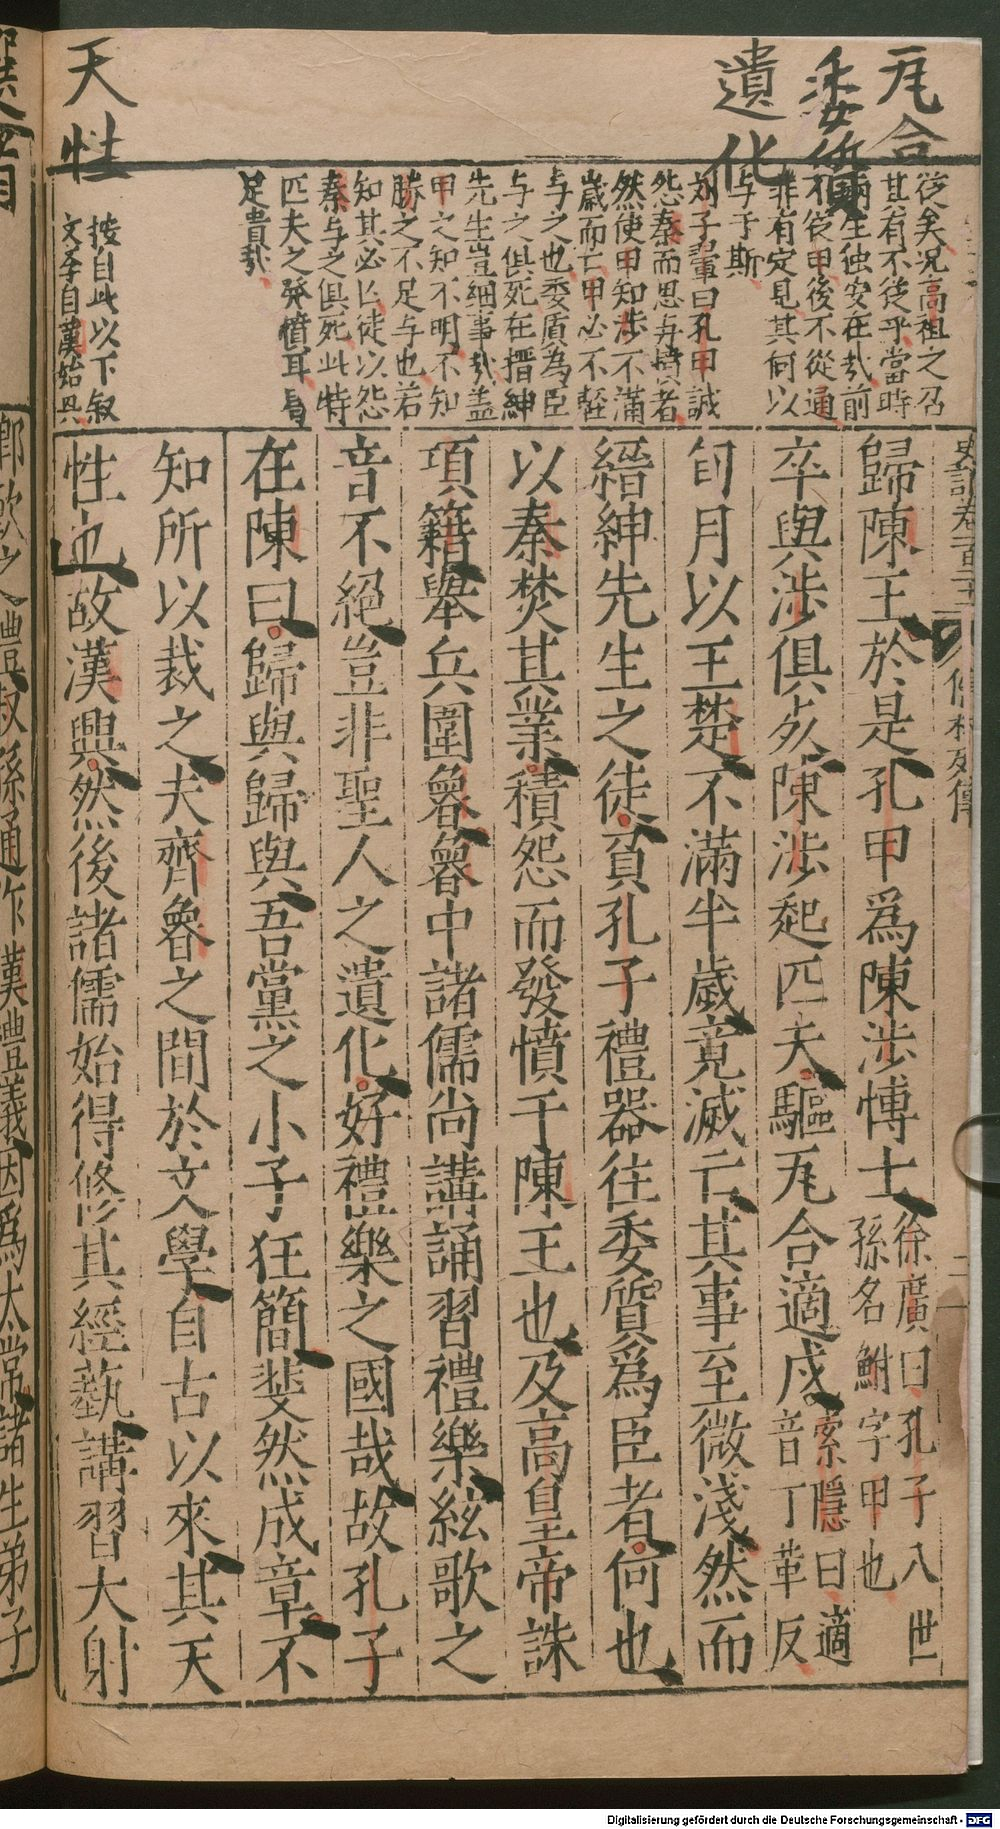 瓦合
委質
遺化
天性
從矣况高祖之召
其有不從乎當時
兩生独安在㢤前
不從甲後不從通
非有定見其何以
与于斯
刘子翬曰孔甲誠
怨秦而思与憤者
然使甲知涉不滿
歲而亡甲必不輕
与之也委质為臣
与之俱死在搢紳
先生豈细事㢤盖
甲之知不明不知
勝之不足与也若
知其必亡徒以怨
秦与之俱死此特
匹夫之發憤耳烏
足貴㢤
按自此以下叙
文学自漢始興
史記卷一百二十一
儒林列傳
二
歸陳王於是孔甲爲陳涉博士徐廣曰孔子八世
孫名鮒字甲也
卒與涉俱死陳涉起匹夫驅瓦合適戍索隱曰適
音丁革反
旬月以王楚不滿半歲竟滅亡其事至微淺然而
縉紳先生之徒負孔子禮器往委質爲臣者何也
以秦焚其業積怨而發憤于陳王也及高皇帝誅
項籍舉兵圍魯魯中諸儒尚講誦習禮樂絃歌之
音不絕豈非聖人之遺化好禮樂之國哉故孔子
在陳曰歸與歸與吾黨之小子狂簡斐然成章不
知所以裁之夫齊魯之間於文學自古以來其天
性也故漢興然後諸儒始得修其經藝講習大射
鄉飲之禮叔孫通作漢禮儀因爲太常諸生弟子
Digitalisierung gefördert durch die Deutsche Forschungsgemeinschaft - DFG